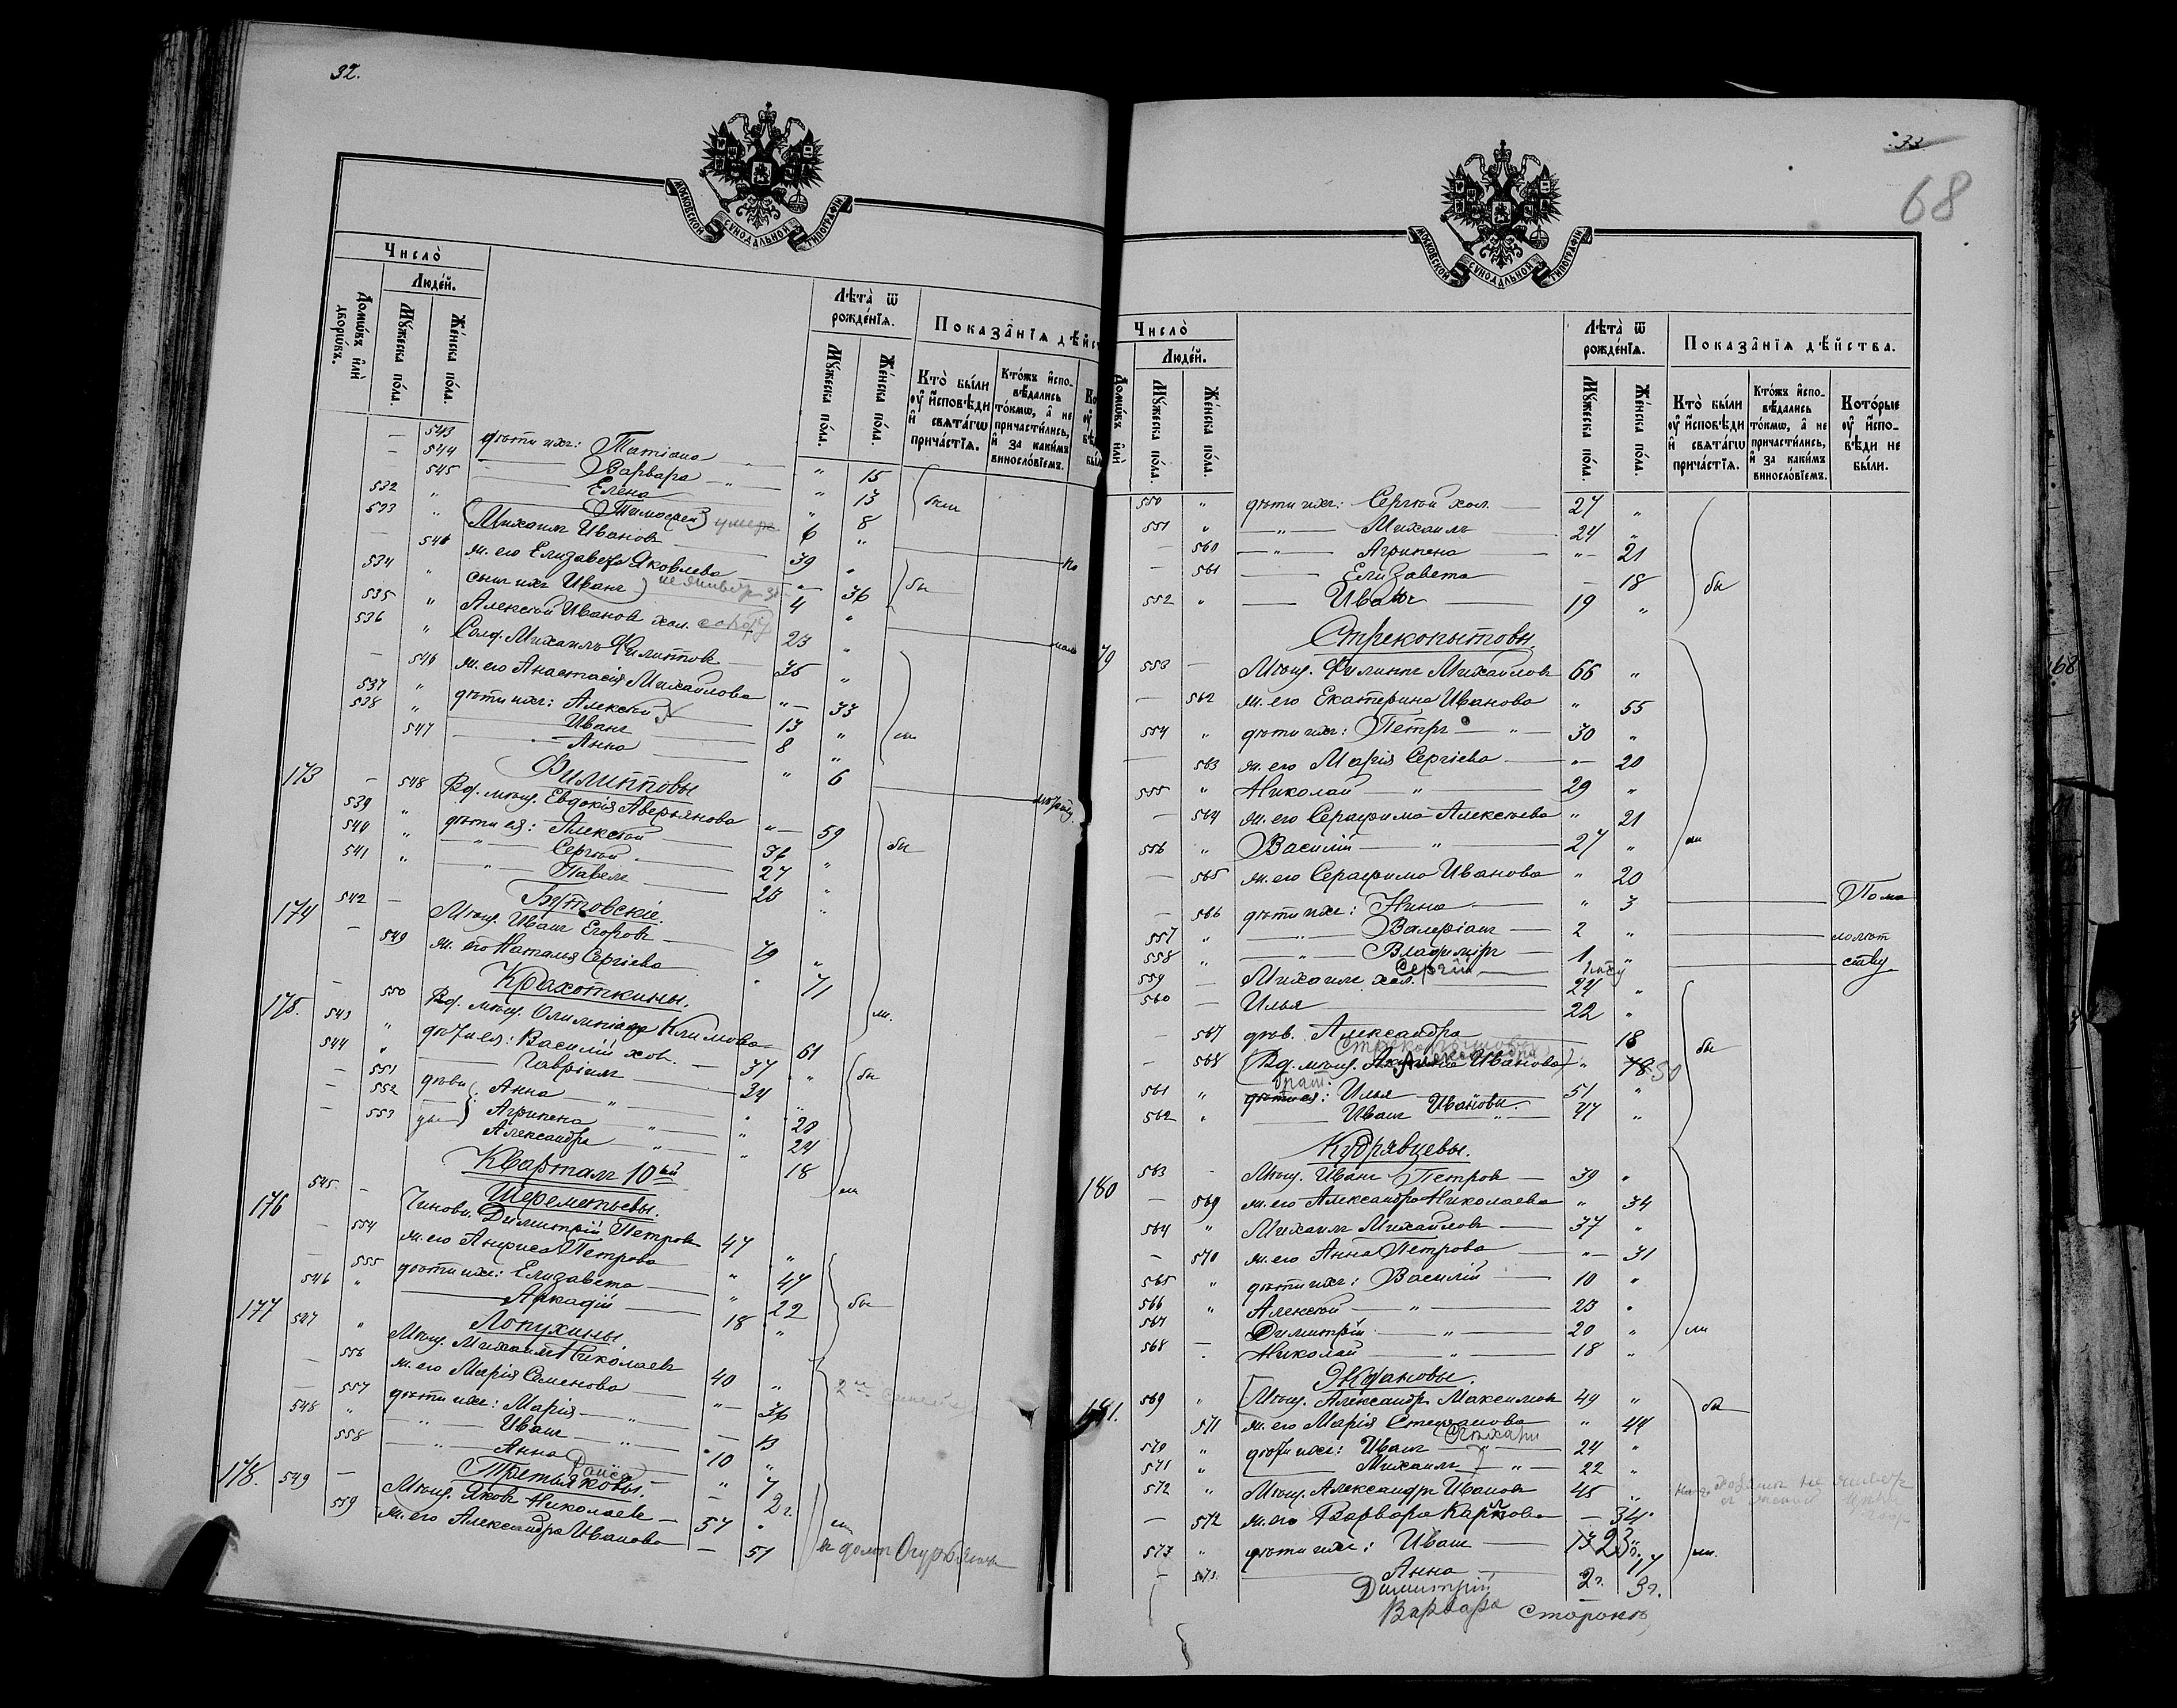 32.
МОСКОВСКОЙ СѴНОДАЛЬНОЙ ТИПОГРАФІИ
Число̀
Люде́й.
Домѡ́въ и҆лѝ дворѡ́въ.
Мꙋ́жеска по́ла.
Же́нска по́ла.
Лѣ́та ѿ рожде́нїѧ.
Мꙋ́жеска по́ла.
Же́нска по́ла.
Показа̑нїѧ дѣ́йст
Кто̀ бы́ли ᲂу҆ и҆́сповѣди и҆ свѧта́гѡ прича́стїѧ.
Кто́жъ и҆спо-вѣ́дались то́кмѡ, а҆ не причасти́лись, и҆ за каки́мъ винослові́емъ.
543 дѣти ихъ: Татіана " 15
544 Варвара " 13 были
545 Елена " 8
532 " Тимофей умеръ 6 "
533 " Михаилъ Ивановъ 39 "
546 ж. его Елизавета Яковлева " 36 бы
534 " сынъ ихъ Иванъ 4 "
535 " Алексѣй Ивановъ хол. 23 "
536 " Солд. Михаилъ Филипповъ 35 "
546 ж. его Анастасія Михайлова " 33
537 " дѣти ихъ: Алексѣй 13 "
538 " Иванъ 8 " ли
547 Анна " 6
Филипповы
173 548 Вд. мѣщ. Евдокія Аверьянова " 59
539 " дѣти ея: Алексѣй 36 " бы
540 " Сергѣй 27 "
541 " Павелъ 20 "
Бутовскіе.
174 542 Мѣщ. Иванъ Егоровъ 79 "
549 ж. его Наталья Сергіева " 71
Крахоткины.
175. 550 Вд. мѣщ. Олимпіада Климова 61 ли.
543 " дѣти ея: Василій хол. 37 "
544 " Гавріилъ 34 " бы
551 Анна " 20
552 Агрипена " 24
553 Александра " 18
Кварталъ 10ый
Шереметьевы.
176 545 Чиновн. Димитрій Петровъ 47 "
554 ж. его Анфиса Петрова " 47
555 дѣти ихъ: Елизавета " 22 бы
546 " Аркадій 18 "
Лопухины
177 547 " Мѣщ. Михаилъ Николаевъ 40 "
556 ж. его Марія Семенова " 36
557 дѣти ихъ: Марія " 13
548 " Иванъ 10 "
558 Анна 7
Раиса 2г.
Третьяковы.
178. 549 Мѣщ. Яковъ Николаевъ 57 "
559 ж. его Александра Иванова 51
33
68
МОСКОВСКОЙ СѴНОДАЛЬНОЙ ТИПОГРАФІИ
Число̀
Люде́й.
Домѡ́въ и҆лѝ
Мꙋ́жеска по́ла.
Же́нска по́ла.
Лѣ́та ѿ рожде́нїѧ.
Мꙋ́жеска по́ла.
Же́нска по́ла.
Показа̑нїѧ дѣ́йства.
Кто̀ бы́ли ᲂу҆ и҆́сповѣди и҆ свѧта́гѡ прича́стїѧ.
Кто́жъ и҆спо-вѣ́дались то́кмѡ, а҆ не причасти́лись, и҆ за каки́мъ винослові́емъ.
Кото́рые ᲂу҆ и҆́спо-вѣди не бы́ли.
550 " дѣти ихъ: Сергѣй хол. 27 "
551 " Михаилъ 24 "
560 Агрипена " 21
561 Елизавета 18 бы
552 " Иванъ 19 "
Стрекопытовы.
79 553 Мѣщ. Филиппъ Михайловъ 66 "
562 ж. его Екатерина Иванова " 55
554 " дѣти ихъ: Петръ 30 "
563 ж. его Марія Сергіева " 20
555 " Николай 29 "
564 ж. его Серафима Алексѣева " 21
556 " Василій 27 " ли
565 ж. его Серафима Иванова " 20
566 дѣти ихъ: Нина " 3 По ма
557 " Валеріанъ 2 " лолѣт
558 " Владиміръ 1 " ству
Сергій
559 Михаилъ хол. 24 "
560 Илья 22 "
567 дѣв. Александра 18 бы
Стрекопытовы
568 Вд. мѣщ. Иванова " 78 50
брат:
561 " дѣти ея: Илья 51 "
562 " Иванъ Ивановы. 47 "
Кудрявцевы.
180 563 Мѣщ. Иванъ Петровъ 39 "
569 ж. его Александра Николаева " 34
564 " Михаилъ Михайловъ 37 "
570 ж. его Анна Петрова " 31
565 " дѣти ихъ: Василій 10 "
566 " Алексѣй 23 "
567 Димитрій 20 " ли
568 Николай 18 "
Ждановы.
181. 569 " Мѣщ. Александръ Максимовъ 49 " бы
571 ж. его Марія Степанова " 44
570 " дѣти ихъ: Иванъ 24 "
571 " Михаилъ 22 "
572 " Мѣщ. Александръ Ивановъ 45 "
572 ж. его Варвара Карпова 34
573 " дѣти ихъ: Иванъ 13 ли.
573 Анна 17
Димитрій 2г.
Варвара 3г.